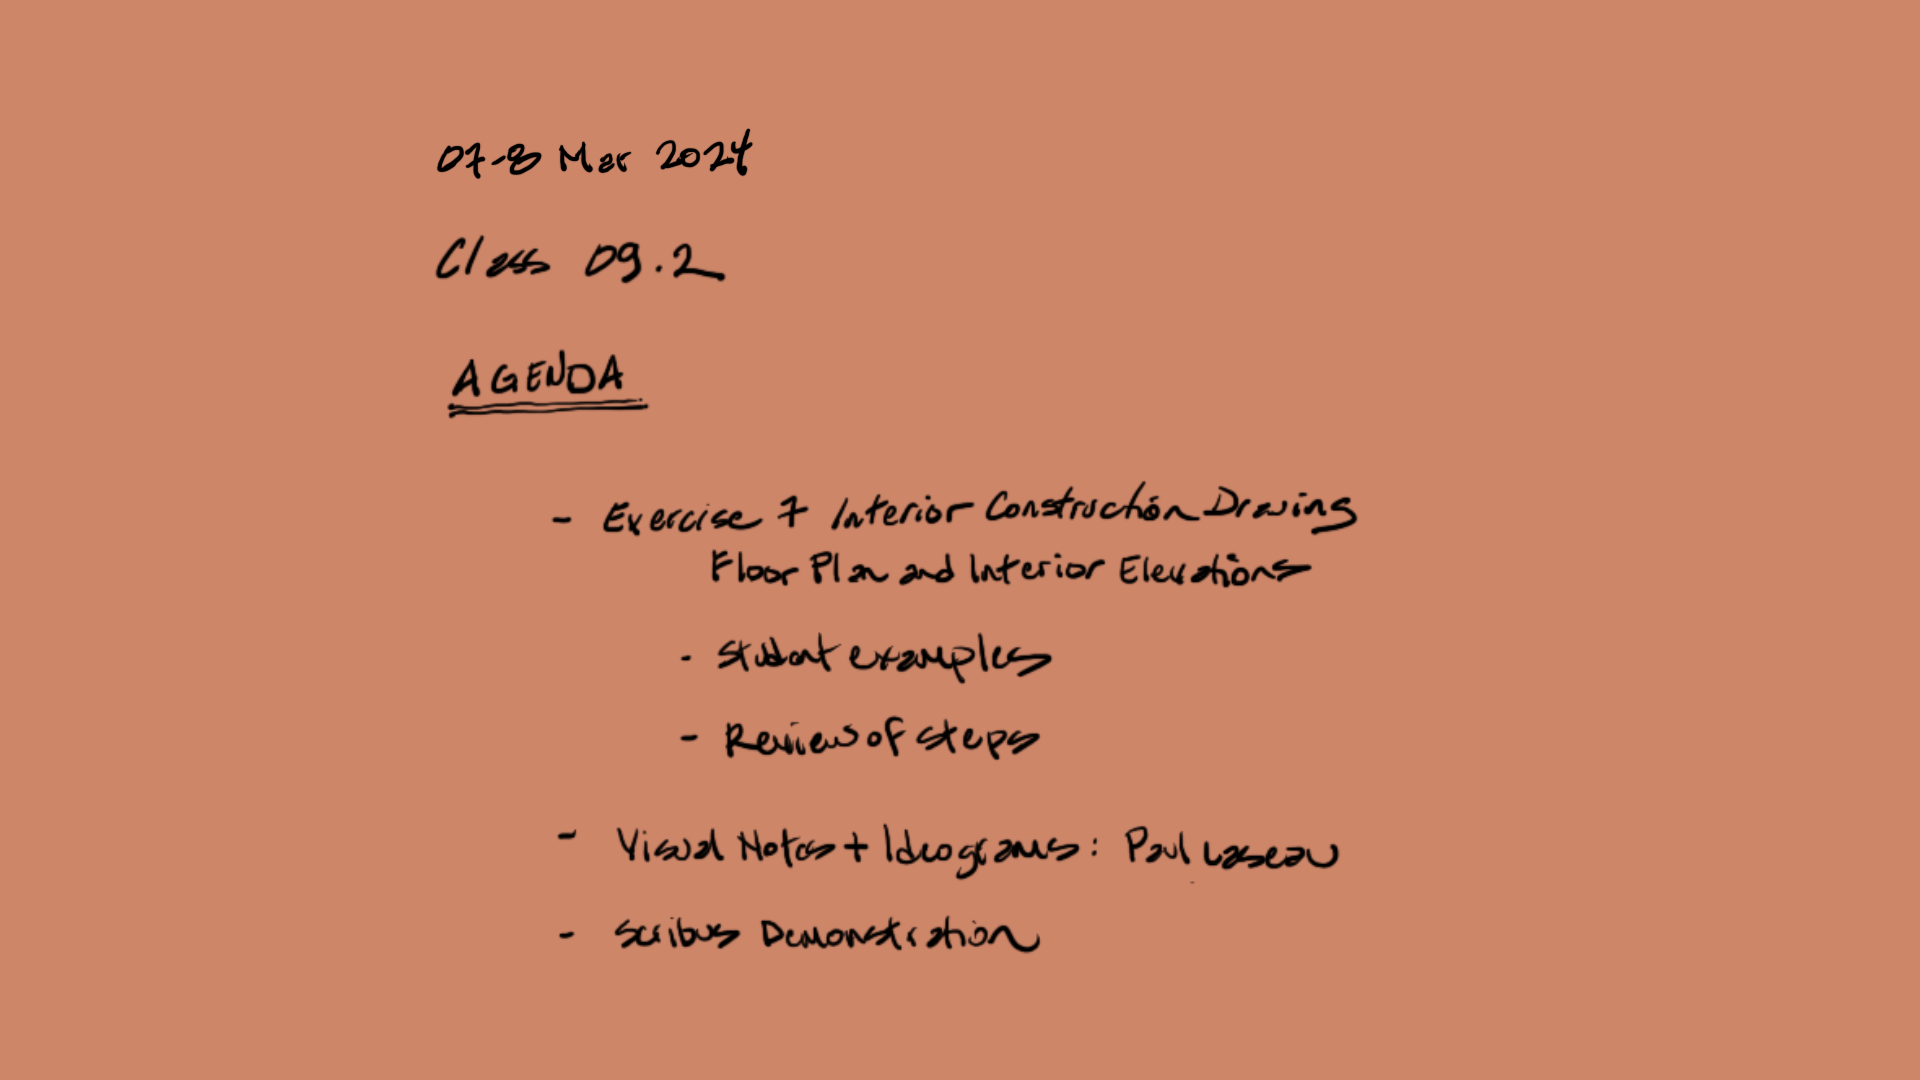 07-8 Mar 2024
Class 09.2
AGENDA
- Exercise 7 Interior Construction Drawing
Floor Plan and Interior Elevations
- Student examples
- Review of steps
- Visual Notes + Ideograms: Paul Laseau
- Scribus Demonstration